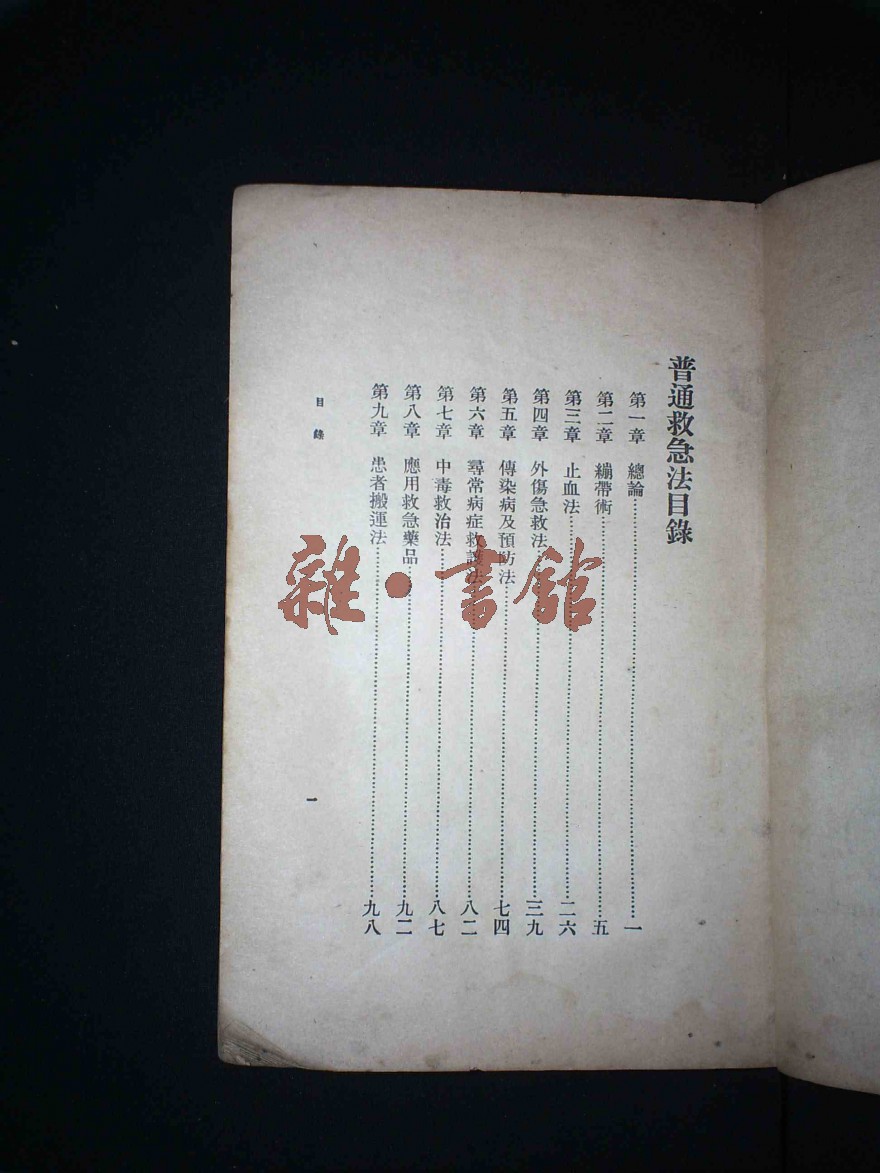 普通救急法目錄
第一章 總論…………一
第二章 繃帶術…………五
第三章 止血法…………二六
第四章 外傷急救法…………三九
第五章 傳染病及預防法…………七四
第六章 尋常病症救護法…………八二
第七章 中毒救治法…………八七
第八章 應用救急藥品…………九二
第九章 患者搬運法…………九八
目錄
一
雜·書館